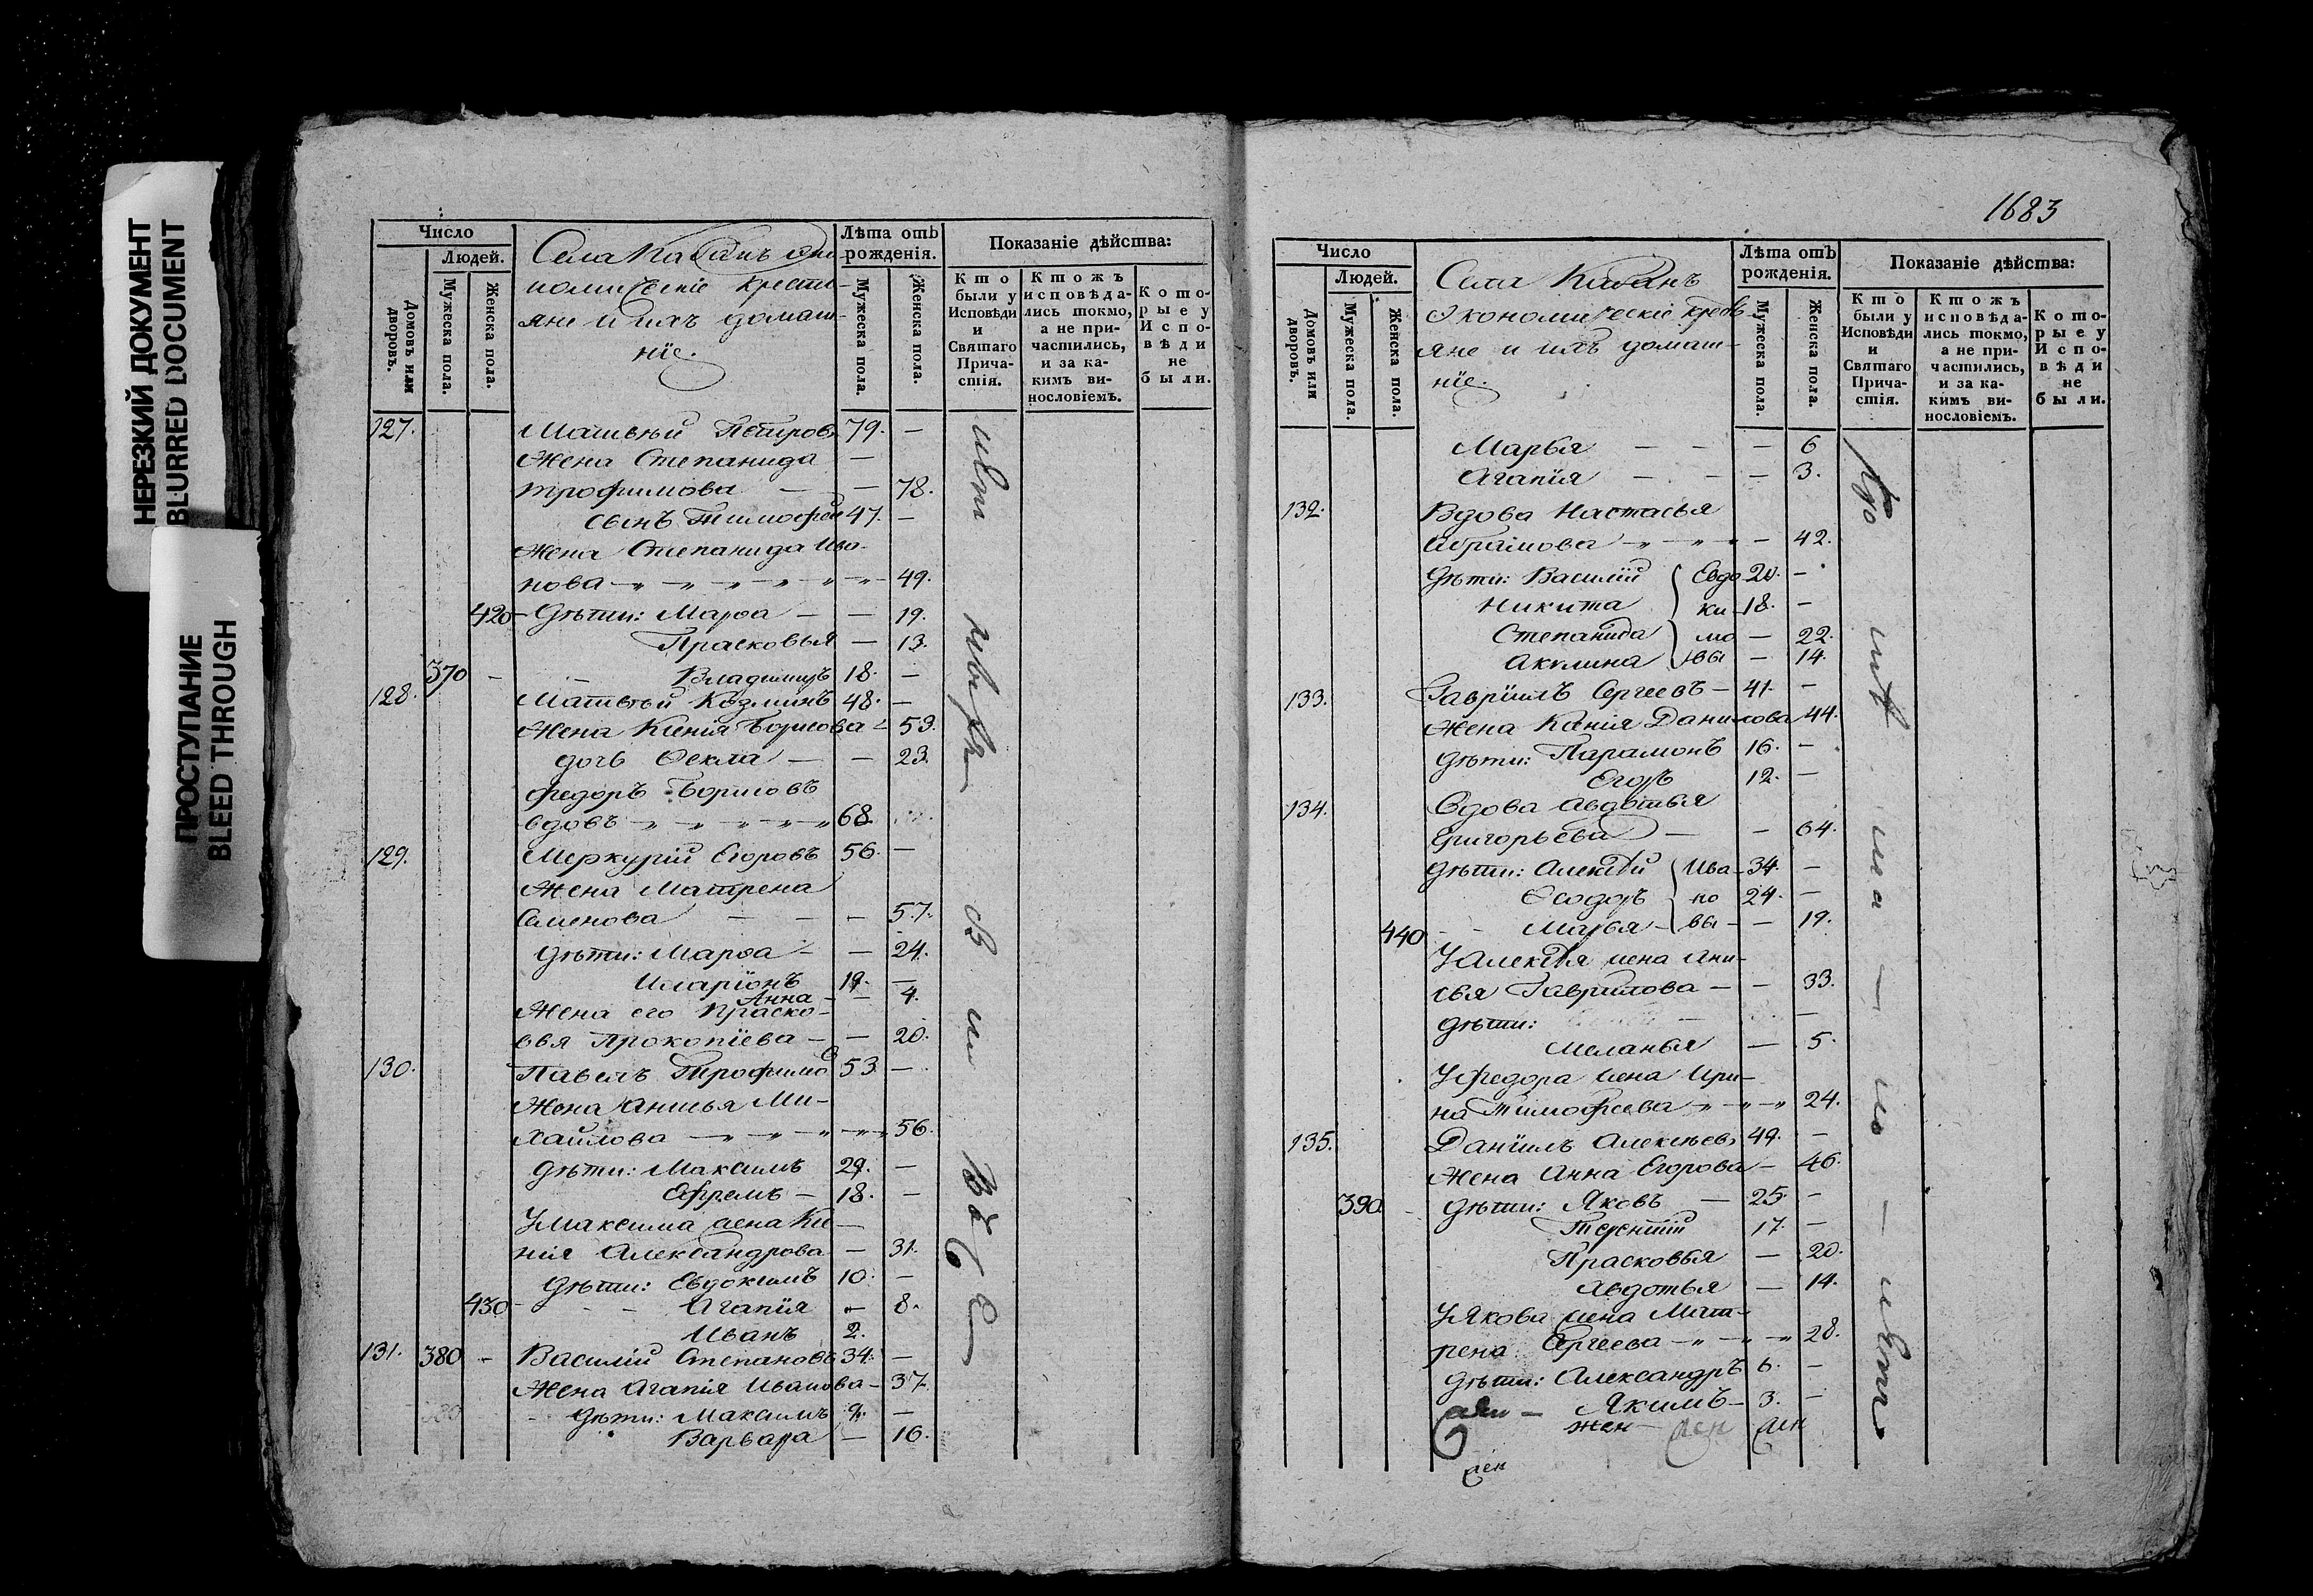 НЕРЕЗКИЙ ДОКУМЕНТ
BLURRED DOCUMENT
ПРОСТУПАНИЕ
BLEED THROUGH
Число
Людей.
Домовъ или дворовъ.
Мужеска пола.
Женска пола.
Села Кабанъ эко
номическіе кресть
яне и ихъ домаш-
ніе.
Лѣта отъ рожденія.
Мужеска пола.
Женска пола.
Показаніе дѣйства:
Кто были у Исповѣди и Святаго Причастія.
Ктожъ исповѣдались токмо, а не причастились, и за какимъ винословіемъ.
Которые у Исповѣди не были.
127. Матвѣй Петровъ 79. —
Жена Степанида —
Трофимова — — 78.
сынъ Тимофей 47. —
Жена Степанида Ива-
нова — 49.
420 — Дѣти: Марѳа — — 19.
Прасковья — 13.
370 — Владимиръ 18. —
128. Матвѣй Козминъ 48. —
Жена Ксенія Борисова — 53.
дочь Ѳекла — — 23.
Федоръ Борисовъ
вдовъ 68.
129. Меркурій Егоровъ 56. —
Жена Матрена
Семенова — — — 57.
Дѣти: Марѳа — — 24.
Иларіонъ 19. —
Анна — — 4.
Жена его Праско-
вья Прокопіева — — 20.
130. Павелъ Трофимовъ 53 —
Жена Анисья Ми-
хайлова — 56.
Дѣти: Максимъ 29. —
Ефремъ — 18. —
У Максима жена Ксе-
нія Александрова — 31.
Дѣти: Евдокимъ 10. —
430 — Агапія — 8.
Иванъ 2.
131. 380 — Василій Степановъ 34. —
Жена Агапія Иванова — 37.
Дѣти: Максимъ 9. —
Варвара — 16.
1683
Число
Людей.
Домовъ или дворовъ.
Мужеска пола.
Женска пола.
Села Кабанъ
Экономическіе кресть
яне и ихъ домаш-
ніе.
Лѣта отъ рожденія.
Мужеска пола.
Женска пола.
Показаніе дѣйства:
Кто были у Исповѣди и Святаго Причастія.
Ктожъ исповѣдались токмо, а не причастились, и за какимъ винословіемъ.
Которые у Исповѣди не были.
Марья — — — 6
Агапія — — — 3.
132. Вдова Настасья
Абрамова — 42.
Дѣти: Василій Евдо 20. —
Никита ки 18. —
Степанида мо — 22.
Акилина вы — 14.
133. Гавріилъ Сергеевъ — 41. —
Жена Ксенія Данилова 44.
Дѣти: Парамонъ 16. —
Егоръ 12. —
134. Вдова Авдотья
Григорьева — — 64.
Дѣти: Алексѣй Ива 34. —
Ѳеодоръ но 24. —
440 — Марья — вы — — 19.
У Алексѣя жена Ани-
сья Гаврилова — — 33.
Дѣти: —
Меланья — 5.
У Федора жена Ири-
на Тимофеева — 24.
135. Даніилъ Алексѣевъ 49. —
Жена Анна Егорова — 46.
390. — Дѣти: Яковъ — 25. —
Терентій 17. —
Прасковья — 20.
Авдотья — 14.
У Якова жена Мат-
рена Сергеева — 28.
Дѣти: Александръ 6. —
Якимъ — 3. —
жен